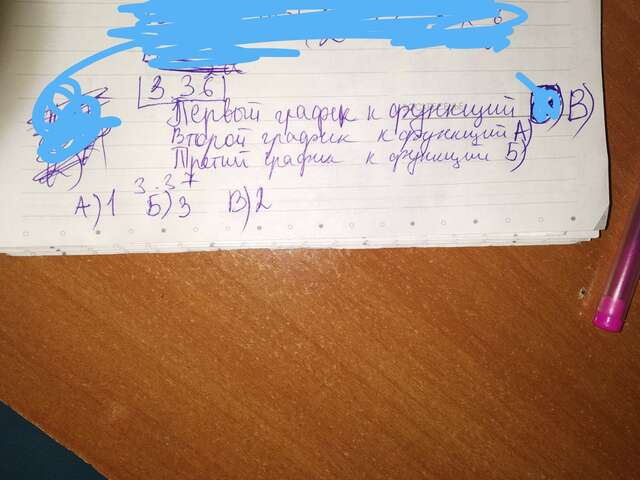 3.36
Первый график к функций В)
Второй график к функций А)
Третий график к функции Б)
3.37
А)1 Б)3 В)2